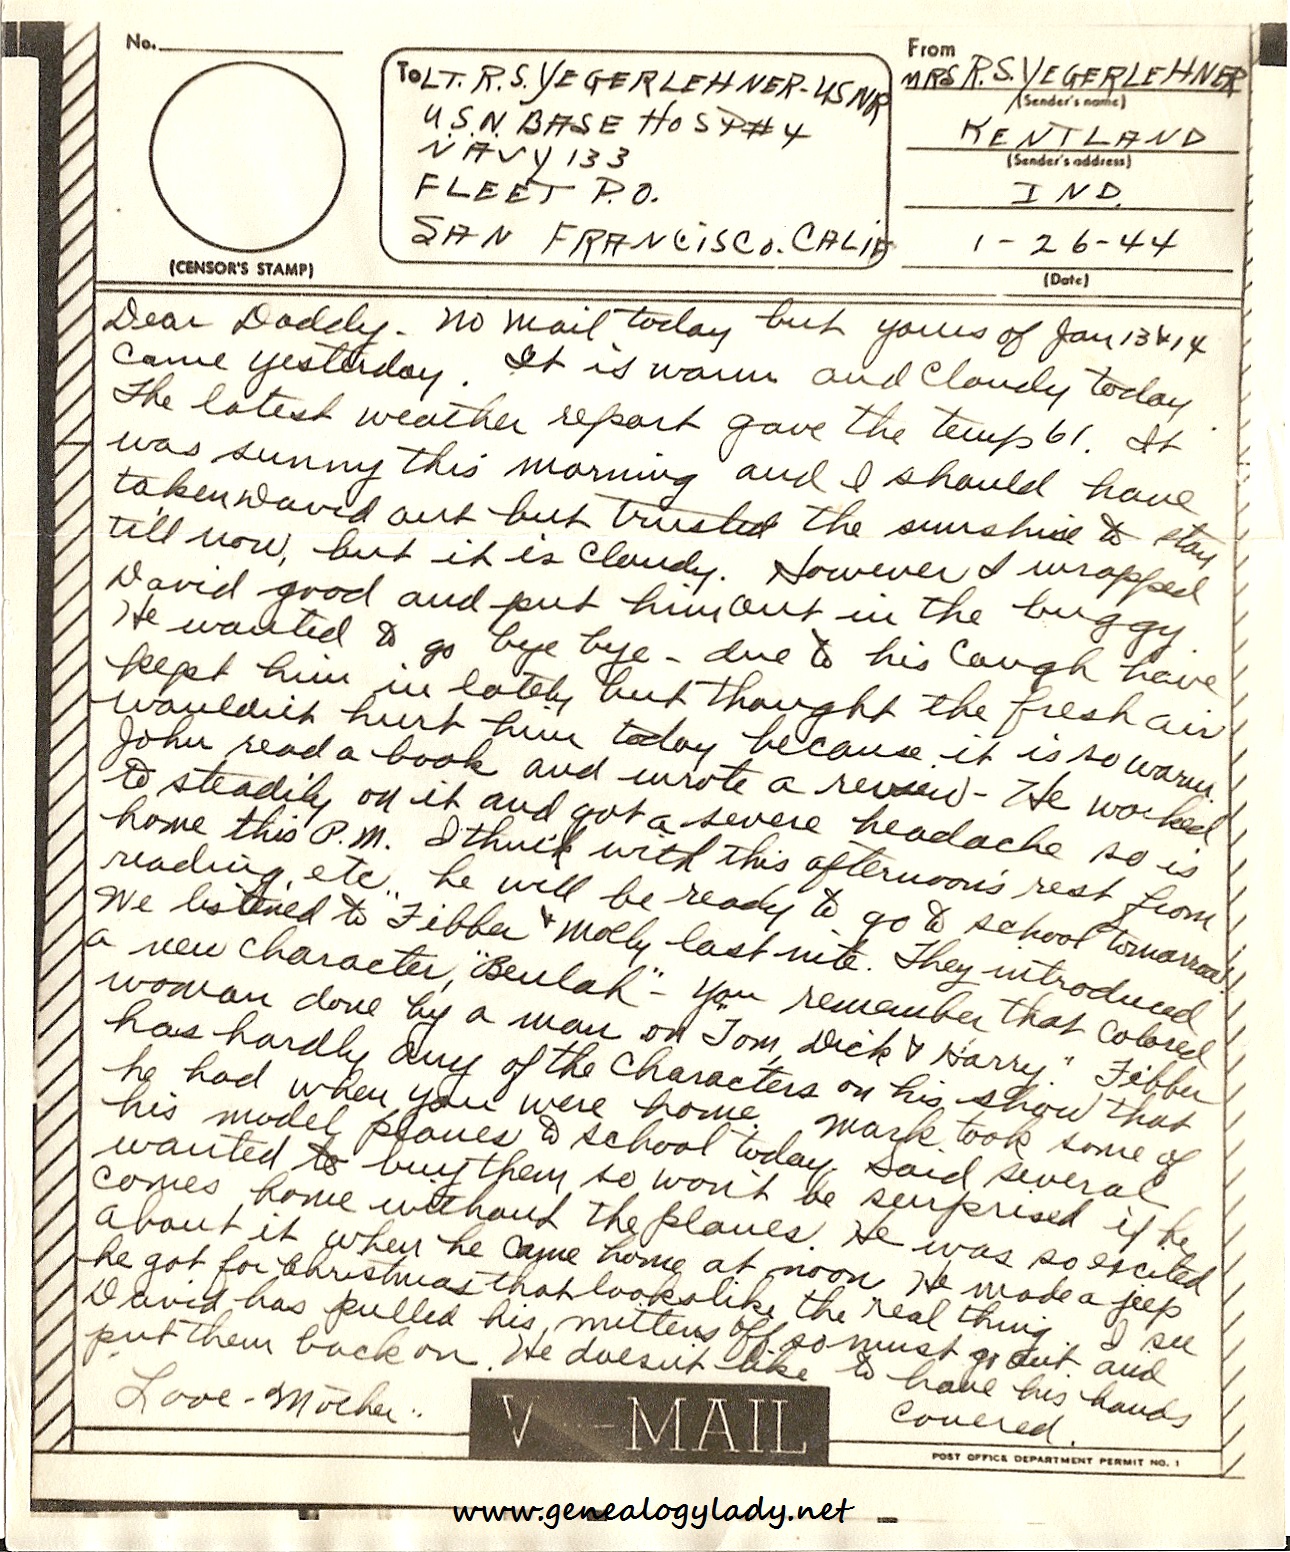 No.
(CENSOR'S STAMP)
To LT. R.S. YEGERLEHNER-USNR
U.S.N. BASE HOSP#4
NAVY 133
FLEET P.O.
SAN FRANCISCO. CALIF
From
MRS R.S. YEGERLEHNER
(Sender's name)
KENTLAND
(Sender's address)
IND.
1-26-44
(Date)
Dear Daddy- No mail today but yours of Jan 13 & 14
came yesterday. It is warm and cloudy today.
The latest weather report gave the temp 61. It
was sunny this morning and I should have
taken David out but trusted the sunshine to stay
till now, but it is cloudy. However I wrapped
David good and put him out in the buggy.
He wanted to go bye bye - due to his cough have
kept him in lately but thought the fresh air
wouldn't hurt him today because it is so warm.
John read a book and wrote a review - He worked
to steadily on it and got a severe headache so is
home this P.M. I think with this afternoon's rest from
reading, etc., he will be ready to go to school tomorrow.
We listened to "Fibber & Molly last nite. They introduced
a new character, "Beulah" - You remember that colored
woman done by a man on "Tom, Dick & Harry." Fibber
has hardly any of the characters on his show that
he had when you were home. Mark took some of
his model planes to school today. Said several
wanted to buy them so won't be surprised if he
comes home without the planes. He was so excited
about it when he came home at noon. He made a jeep
he got for Christmas that looks like the real thing. I see
David has pulled his mittens off so must go out and
put them back on. He doesn't like to have his hands
covered.
Love - Mother..
V---MAIL
POST OFFICE DEPARTMENT PERMIT NO. 1
www.genealogylady.net